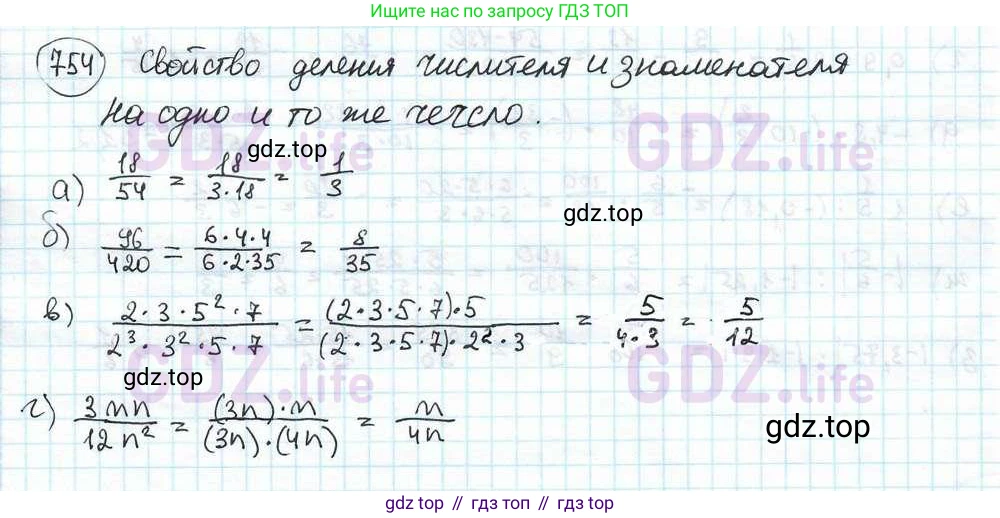 Ищите нас по запросу ГДЗ ТОП
754 Свойство деления числителя и знаменателя
на одно и то же число.
gdz.top
а) 18/54 = 18/(3·18) = 1/3
gdz.top
б) 96/420 = (6·4·4)/(6·2·35) = 8/35
в) (2·3·5²·7)/(2³·3²·5·7) = ((2·3·5·7)·5)/((2·3·5·7)·2²·3) = 5/(4·3) = 5/12
gdz.top
г) 3mn/12n² = ((3n)·m)/((3n)·(4n)) = m/4n
gdz.top
GDZ.life
GDZ.life
GDZ.life
GDZ.life
gdz top // гдз топ // gdz.top // гдз.топ